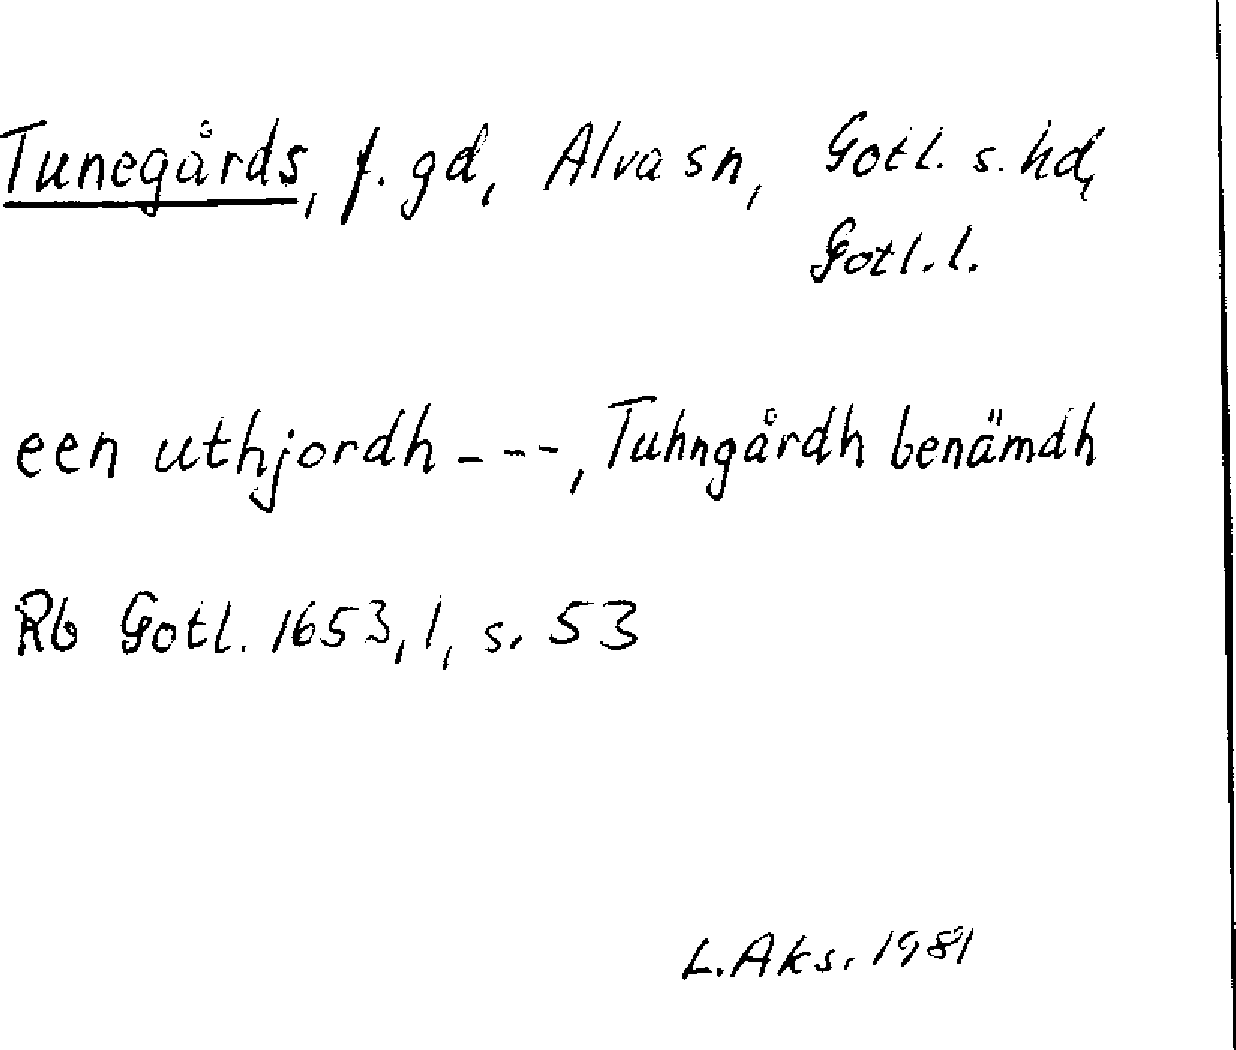 Tunegårds, f. gd, Alva sn, Gotl. s. hd,
Gotl. l.
een uthjordh ---, Tuhngårdh benämdh
Rb Gotl. 1653, 1, s. 53
L. Aks. 1981